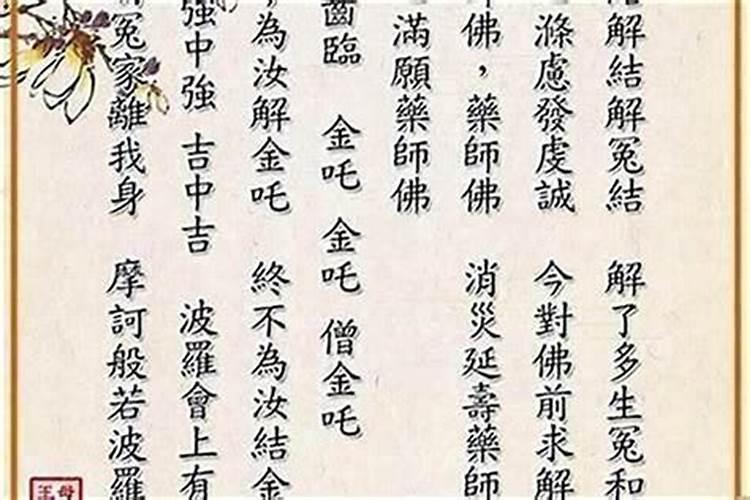 解結解冤結 解了多生冤和
滌慮發虔誠 今對佛前求解
師佛，藥師佛 消災延壽藥師
滿願藥師佛
齒臨 金吒 金吒 僧金吒
，為汝解金吒 終不為汝結金
強中強 吉中吉 波羅會上有
冤家離我身 摩訶般若波羅